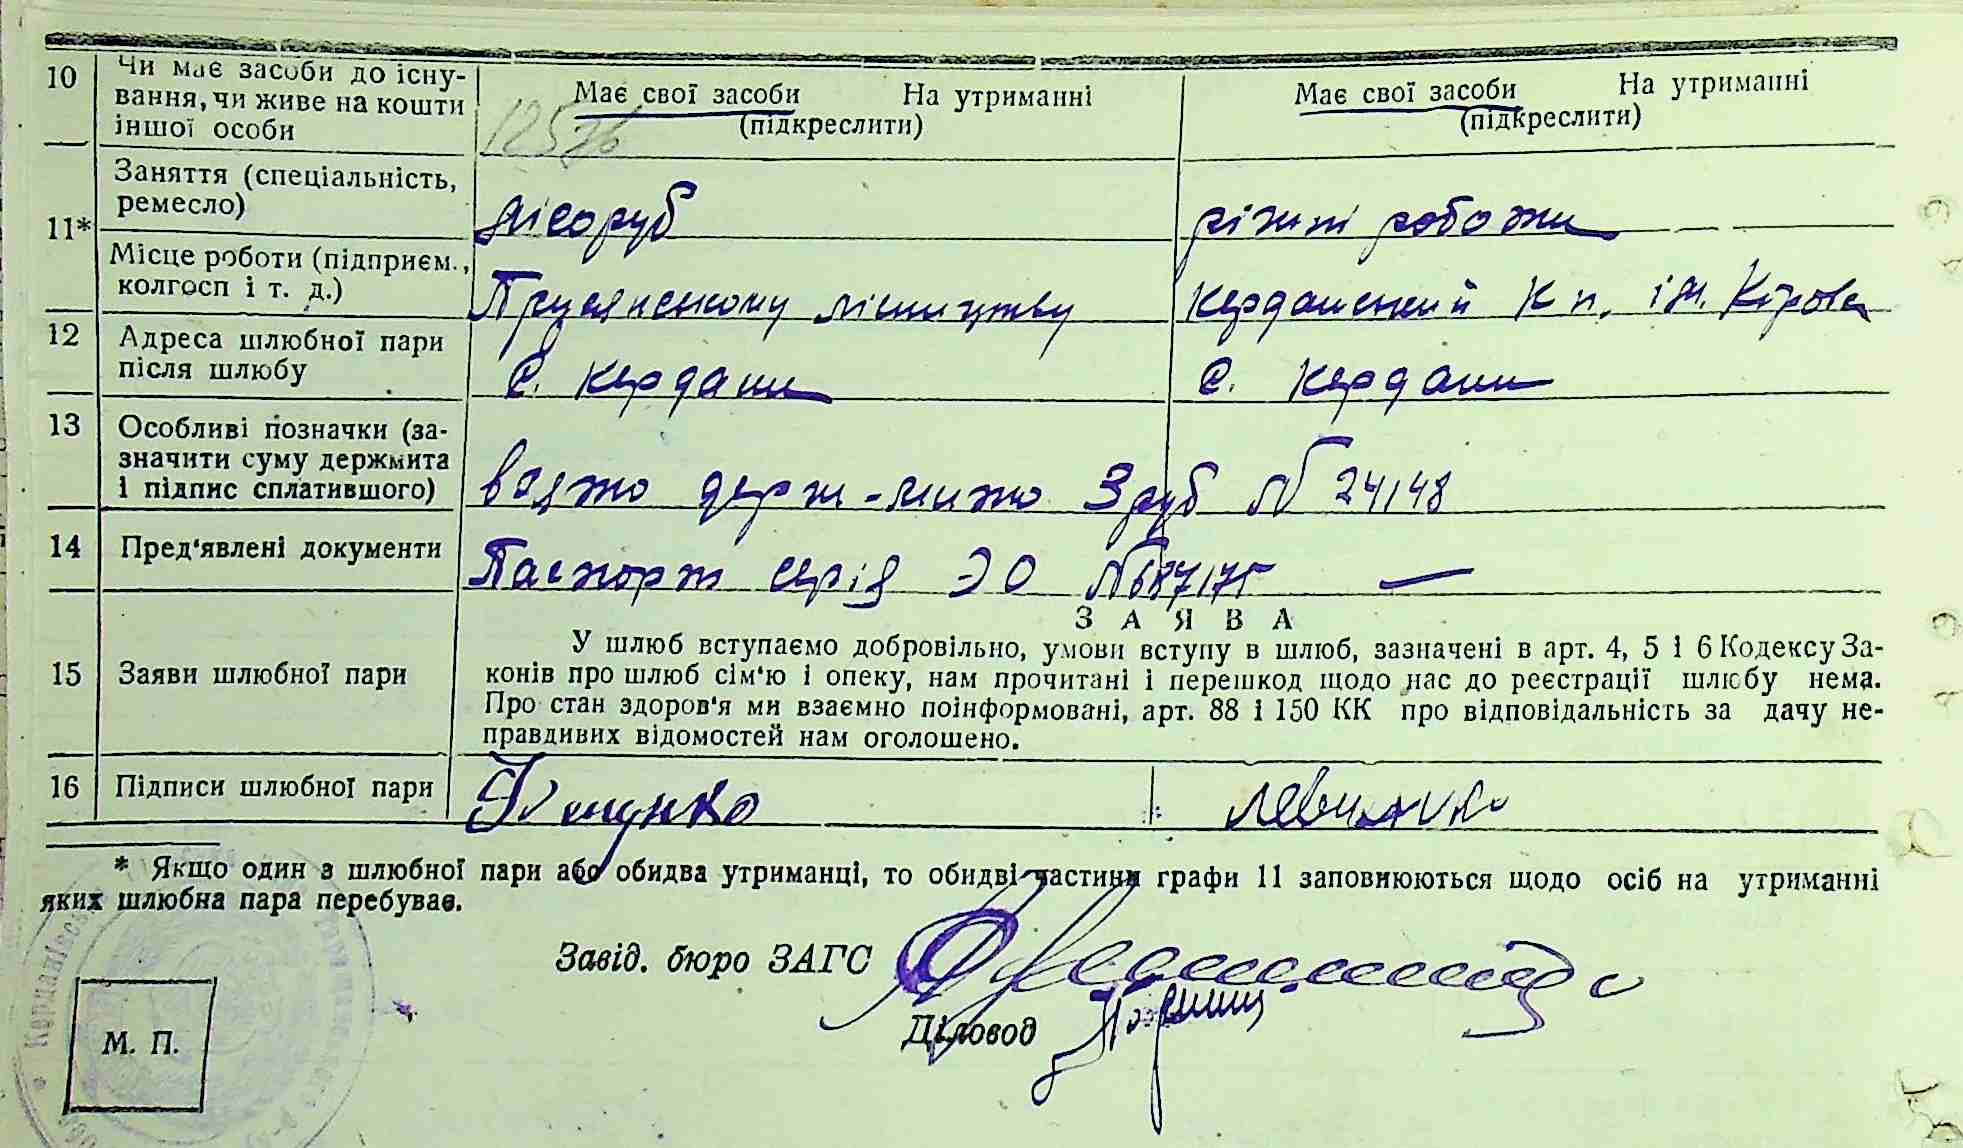 10 Чи має засоби до існу-
вання, чи живе на кошти
іншої особи
Має свої засоби На утриманні
(підкреслити)
Має свої засоби На утриманні
(підкреслити)
11*
Заняття (спеціальність,
ремесло)
лісоруб
різні роботи
Місце роботи (підприєм.,
колгосп і т. д.)
лісництву
Кердашений к п. ім. Кірова
12 Адреса шлюбної пари
після шлюбу
с. Кердани
с. Кердани
13 Особливі позначки (за-
значити суму держмита
і підпис сплатившого)
взято держ-мито 3 руб № 24148
14 Пред'явлені документи
Паспорт серія ЭО № 687175 —
ЗАЯВА
15 Заяви шлюбної пари
У шлюб вступаємо добровільно, умови вступу в шлюб, зазначені в арт. 4, 5 і 6 Кодексу За-
конів про шлюб сім'ю і опеку, нам прочитані і перешкод щодо нас до реєстрації шлюбу нема.
Про стан здоров'я ми взаємно поінформовані, арт. 88 і 150 КК про відповідальність за дачу не-
правдивих відомостей нам оголошено.
16 Підписи шлюбної пари
* Якщо один з шлюбної пари або обидва утриманці, то обидві частини графи 11 заповнюються щодо осіб на утриманні
яких шлюбна пара перебуває.
Завід. бюро ЗАГС
Діловод
М. П.